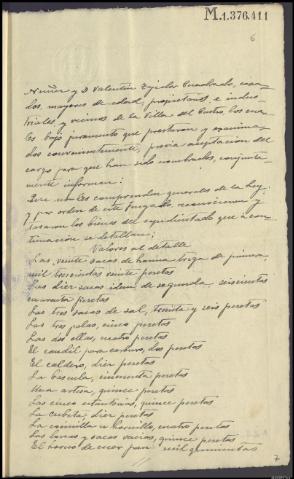 M.1.376.411
6
y D. Valentin Tejedor Cuadrado, casa-
dos, mayores de edad, propietarios e indus-
triales y vecinos de la Villa del
les bajo juramento que prestaron y examina-
dos convenientemente, previa aceptacion del
cargo para que han sido nombrados, conjunta-
mente informan:
Que no les comprenden generales de la Ley
y por orden de este Juzgado, reconocieron y
tasaron los bienes del expedientado que a con-
tinuación se detallan:
Valores al detalle
Las veinte sacas de harina de primera
mil trescientas veinte pesetas
Las diez sacas idem de segunda, seiscientas
cuarenta pesetas
Las tres sacas de sal, treinta y seis pesetas
Las tres palas, cinco pesetas
Las dos ollas, cuatro pesetas
El candil para carburo, dos pesetas
El caldero, diez pesetas
La bascula, cincuenta pesetas
Una artesa, quince pesetas
Las cinco estanterias, quince pesetas
La cubeta, diez pesetas
La o hornillo, cuatro pesetas
Las y sacas vacias, quince pesetas
El horno de cocer pan mil quinientas
7